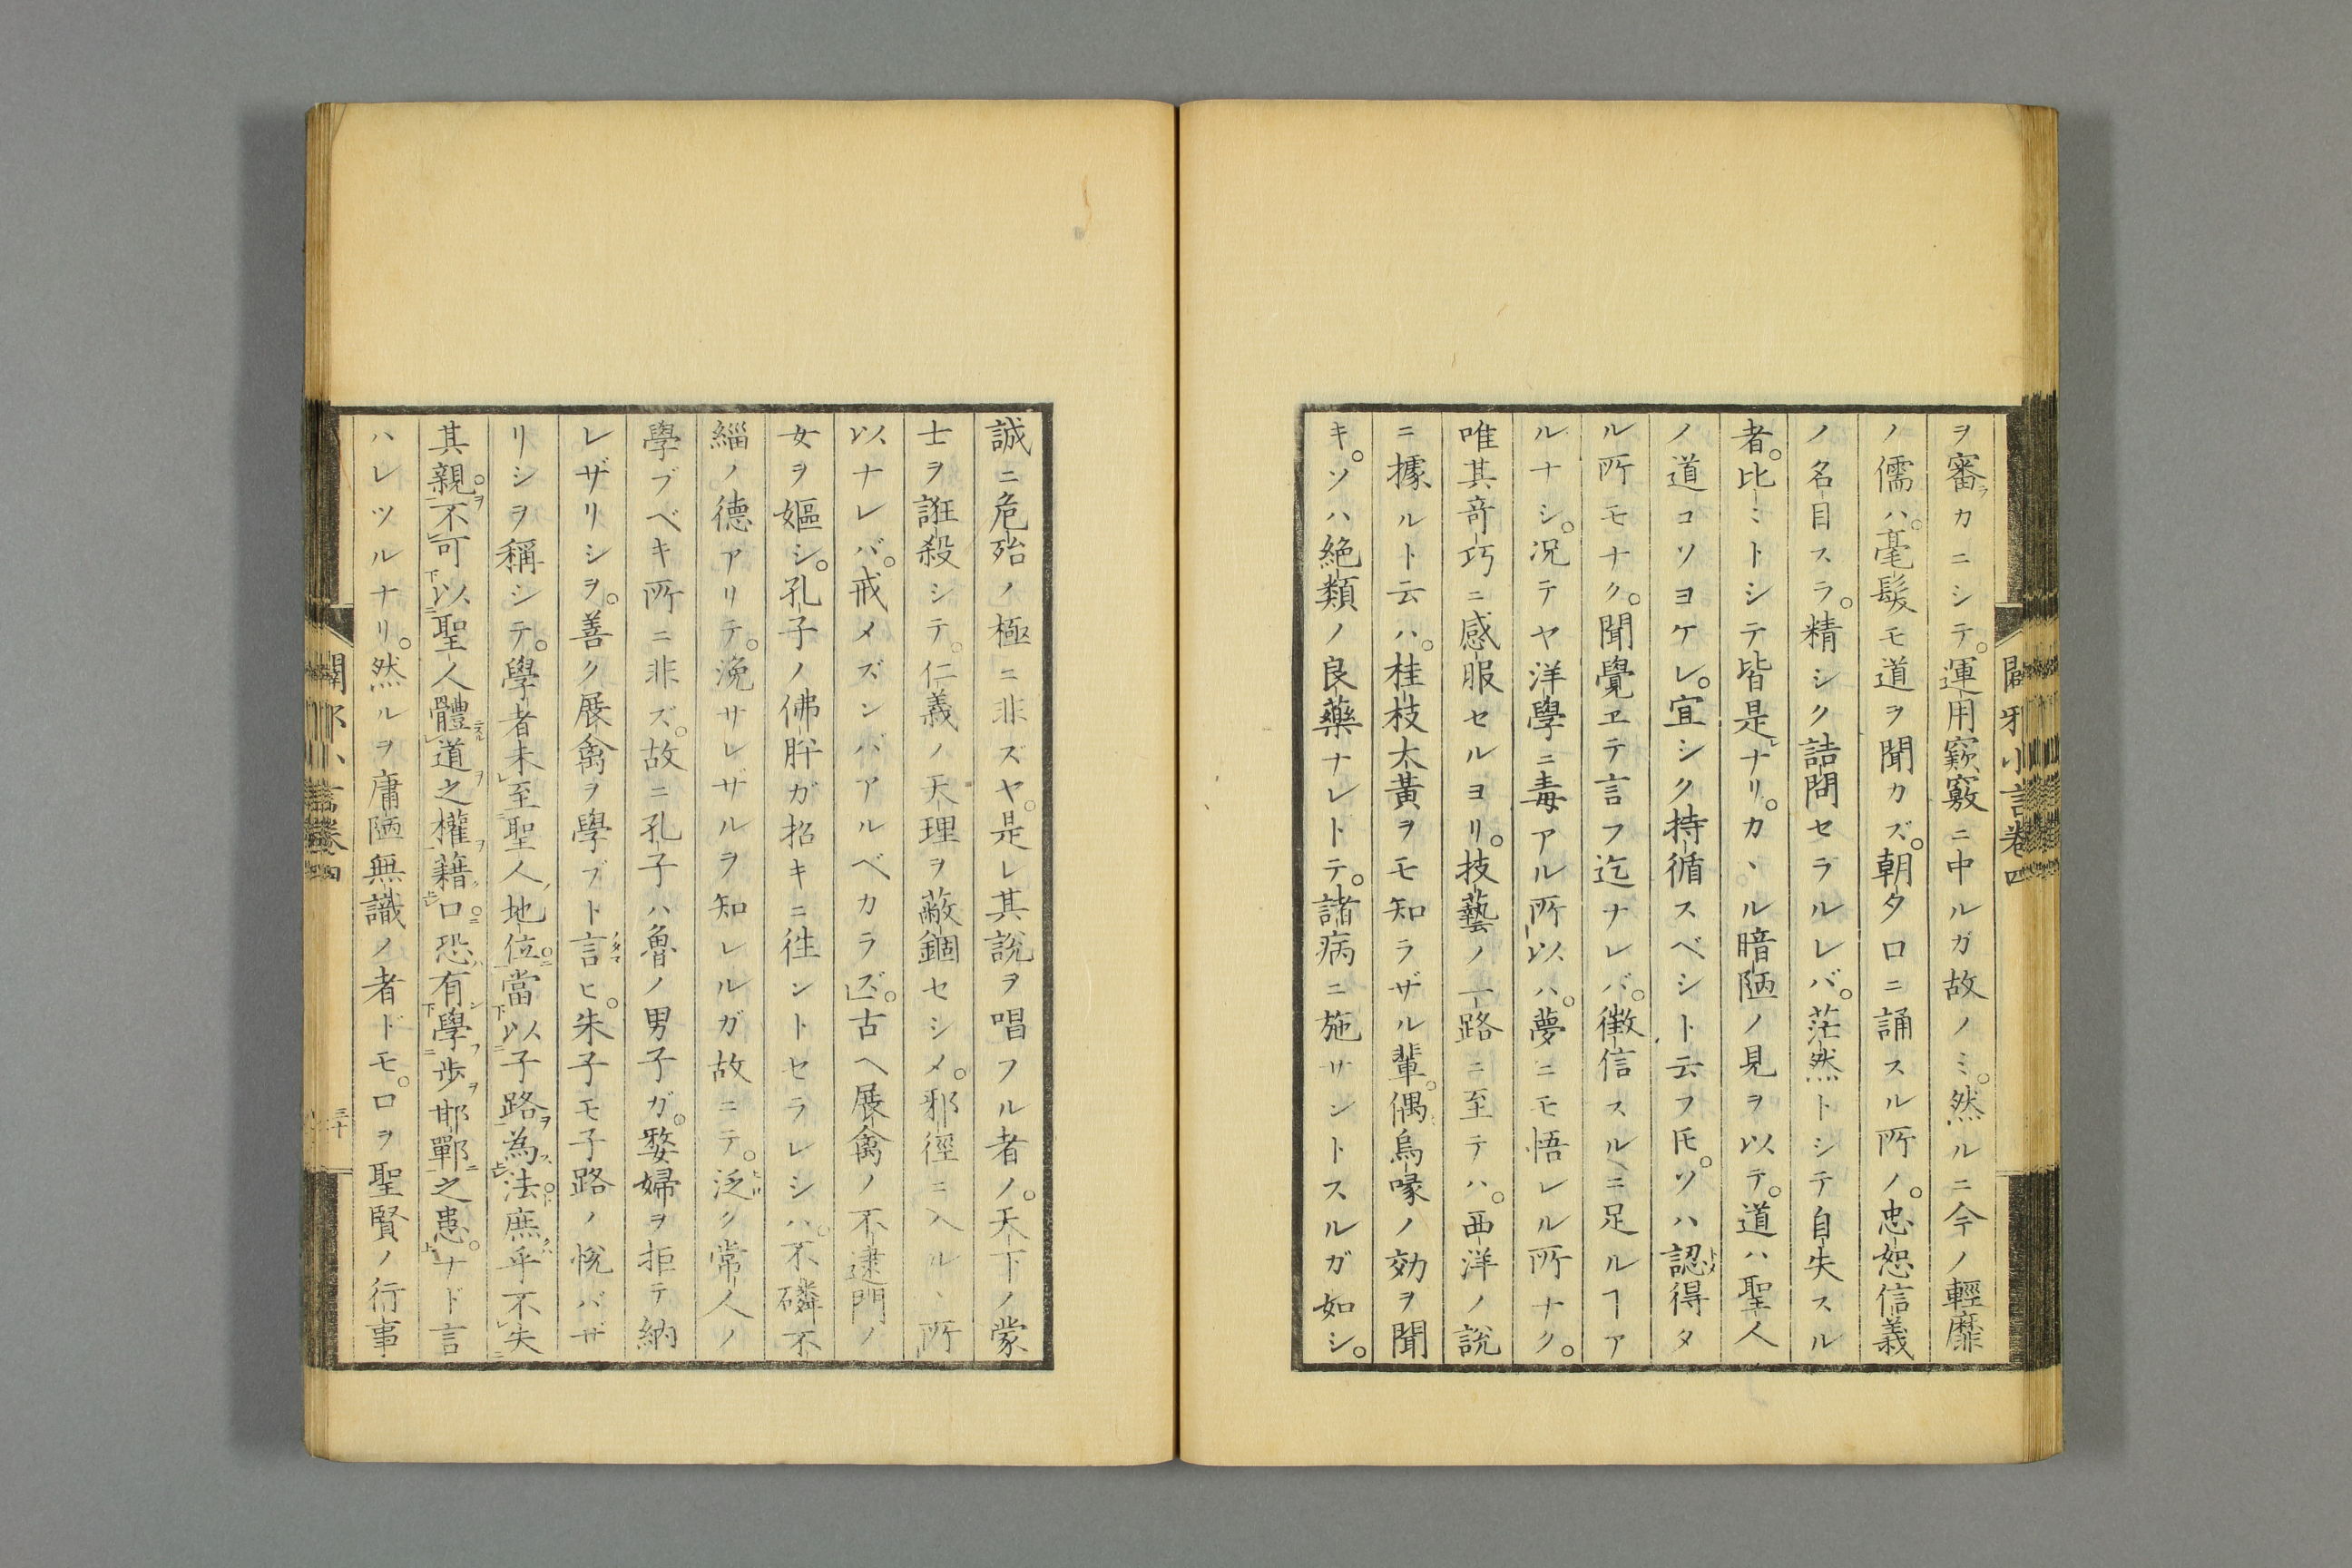 闢邪小言卷四
ヲ審カニシテ。運用窾竅ニ中ルガ故ノミ。然ルニ今ノ輕靡
ノ儒ハ。毫髮モ道ヲ聞カズ。朝夕口ニ誦スル所ノ。忠恕信義
ノ名目スラ。精シク詰問セラルレバ。茫然トシテ自失スル
者。比ミトシテ皆是ナリ。カヽル暗陋ノ見ヲ以テ。道ハ聖人
ノ道コソヨケレ。宜シク持循スベシト云フ𪜈。ソハ認得タ
ル所モナク。聞覺ヱテ言フ迄ナレバ。徵信スルニ足ルヿア
ルナシ。況テヤ洋學ニ毒アル所以ハ。夢ニモ悟レル所ナク。
唯其奇巧ニ感服セルヨリ。技藝ノ一路ニ至テハ。西洋ノ說
ニ據ルト云ハ。桂枝太黃ヲモ知ラザル輩。偶烏喙ノ効ヲ聞
キ。ソハ絶類ノ良藥ナレトテ。諸病ニ施サントスルガ如シ。
誠ニ危殆ノ極ニ非ズヤ。是レ其說ヲ唱フル者ノ。天下ノ蒙
士ヲ誑殺シテ。仁義ノ天理ヲ蔽錮セシメ。邪徑ニ入ルヽ所
以ナレバ。戒メズンバアルベカラズ。古ヘ展禽ノ不逮門ノ
女ヲ嫗シ。孔子ノ佛肸ガ招キニ徃ントセラレシハ。不磷不
緇ノ德アリテ。浼サレザルヲ知レルガ故ニテ。泛ク常人ノ
學ブベキ所ニ非ズ。故ニ孔子ハ魯ノ男子ガ。嫠婦ヲ拒テ納
レザリシヲ。善ク展禽ヲ學ブト言ヒ。朱子モ子路ノ悅バザ
リシヲ稱シテ。學者未至聖人地位。當以子路為法。庶乎不失
其親。不可以聖人體道之權藉口。恐有學步邯鄲之患。ナド言
ハレツルナリ。然ルヲ庸陋無識ノ者ドモ。口ヲ聖賢ノ行事
闢邪小言卷四
三十